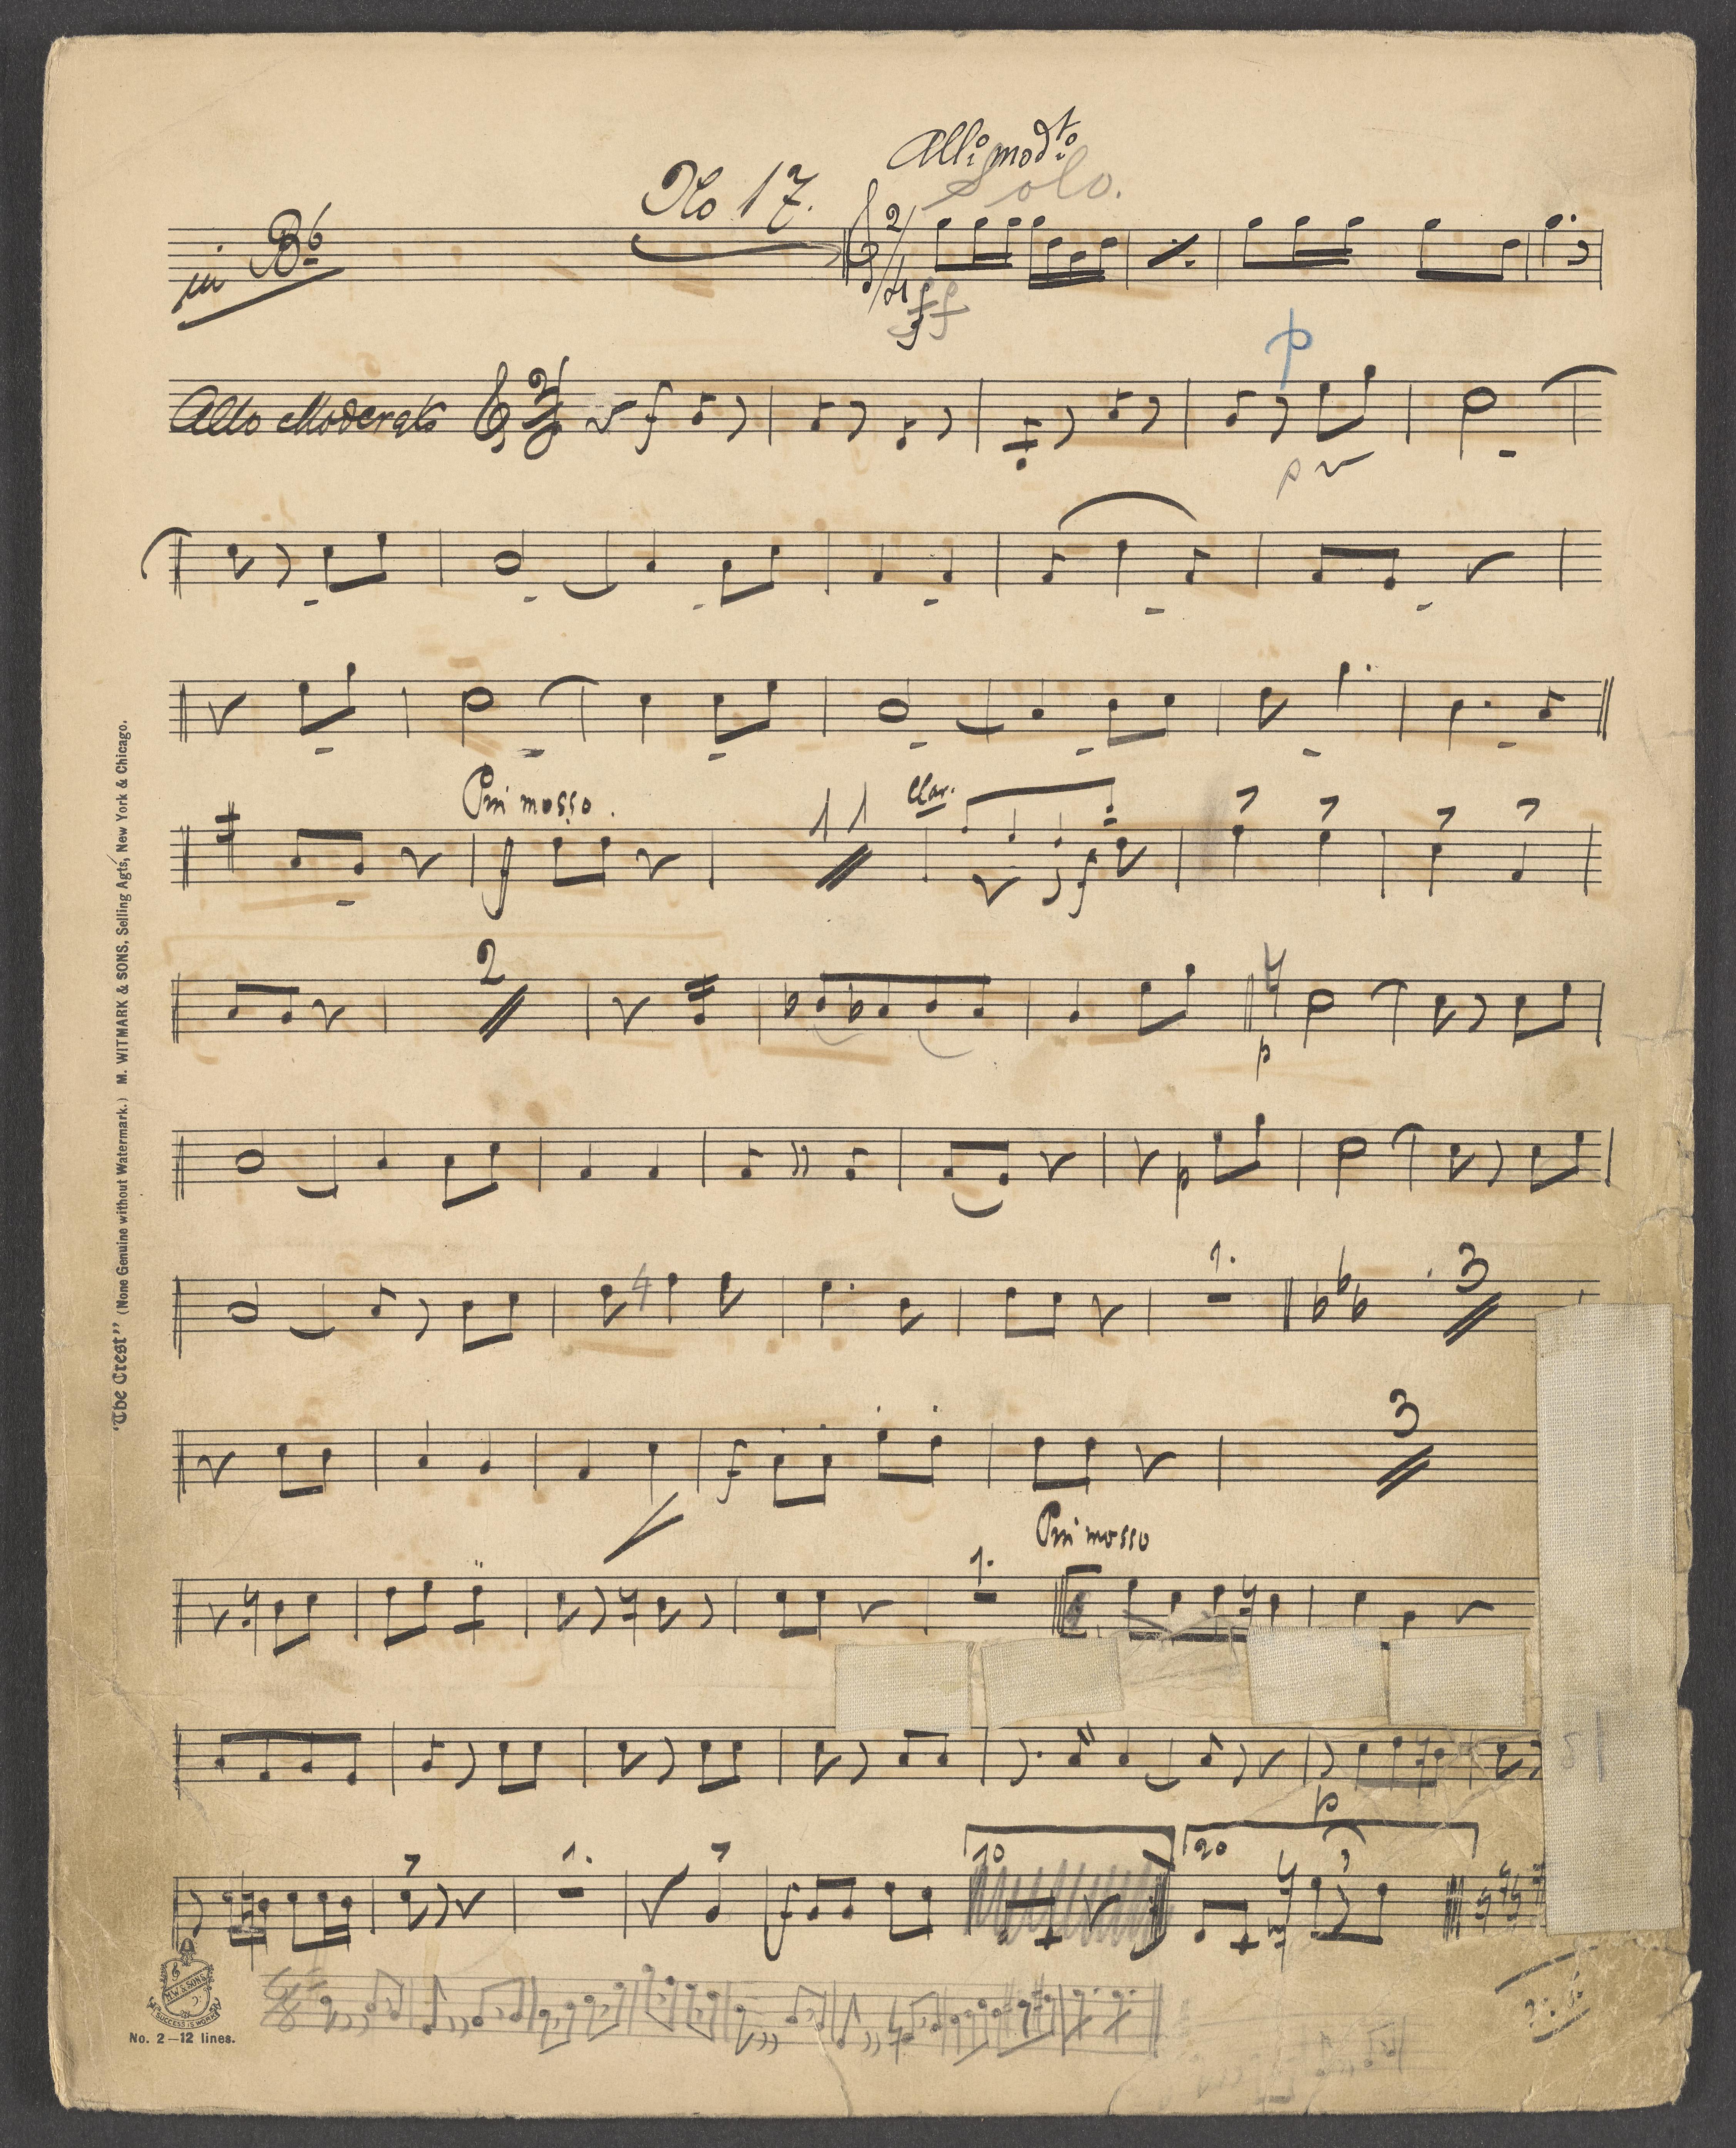 Allo modto
Solo.
No 17.
in Bb
2/4
ff
p
Allo Moderato 2/4 f
p
Piu mosso.
f
1 1
Clar.
f
2
p
p
1.
3
f
3
Piu mosso
1.
p
1.
f
10
20
3
"The Crest" (None Genuine without Watermark.) M. WITMARK & SONS, Selling Agts, New York & Chicago.
M.W & SONS
SUCCESS IS WORK
No. 2—12 lines.